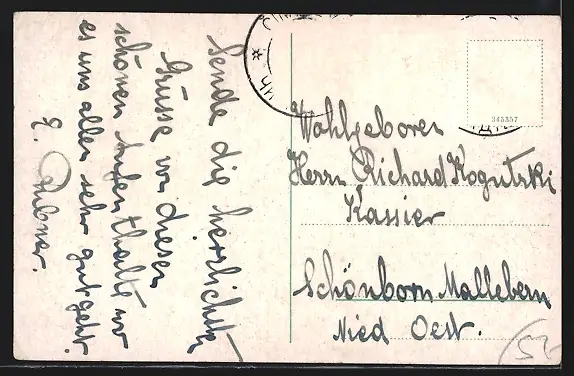 Sende die herrlichsten
Grüsse von diesen
schönen Aufenthalte wo
es uns allen sehr gut geht.
345357
Wohlgeboren
Herrn Richard Kogutzki
Kassier
Schönborn Mallebern
Nied Oest.
52